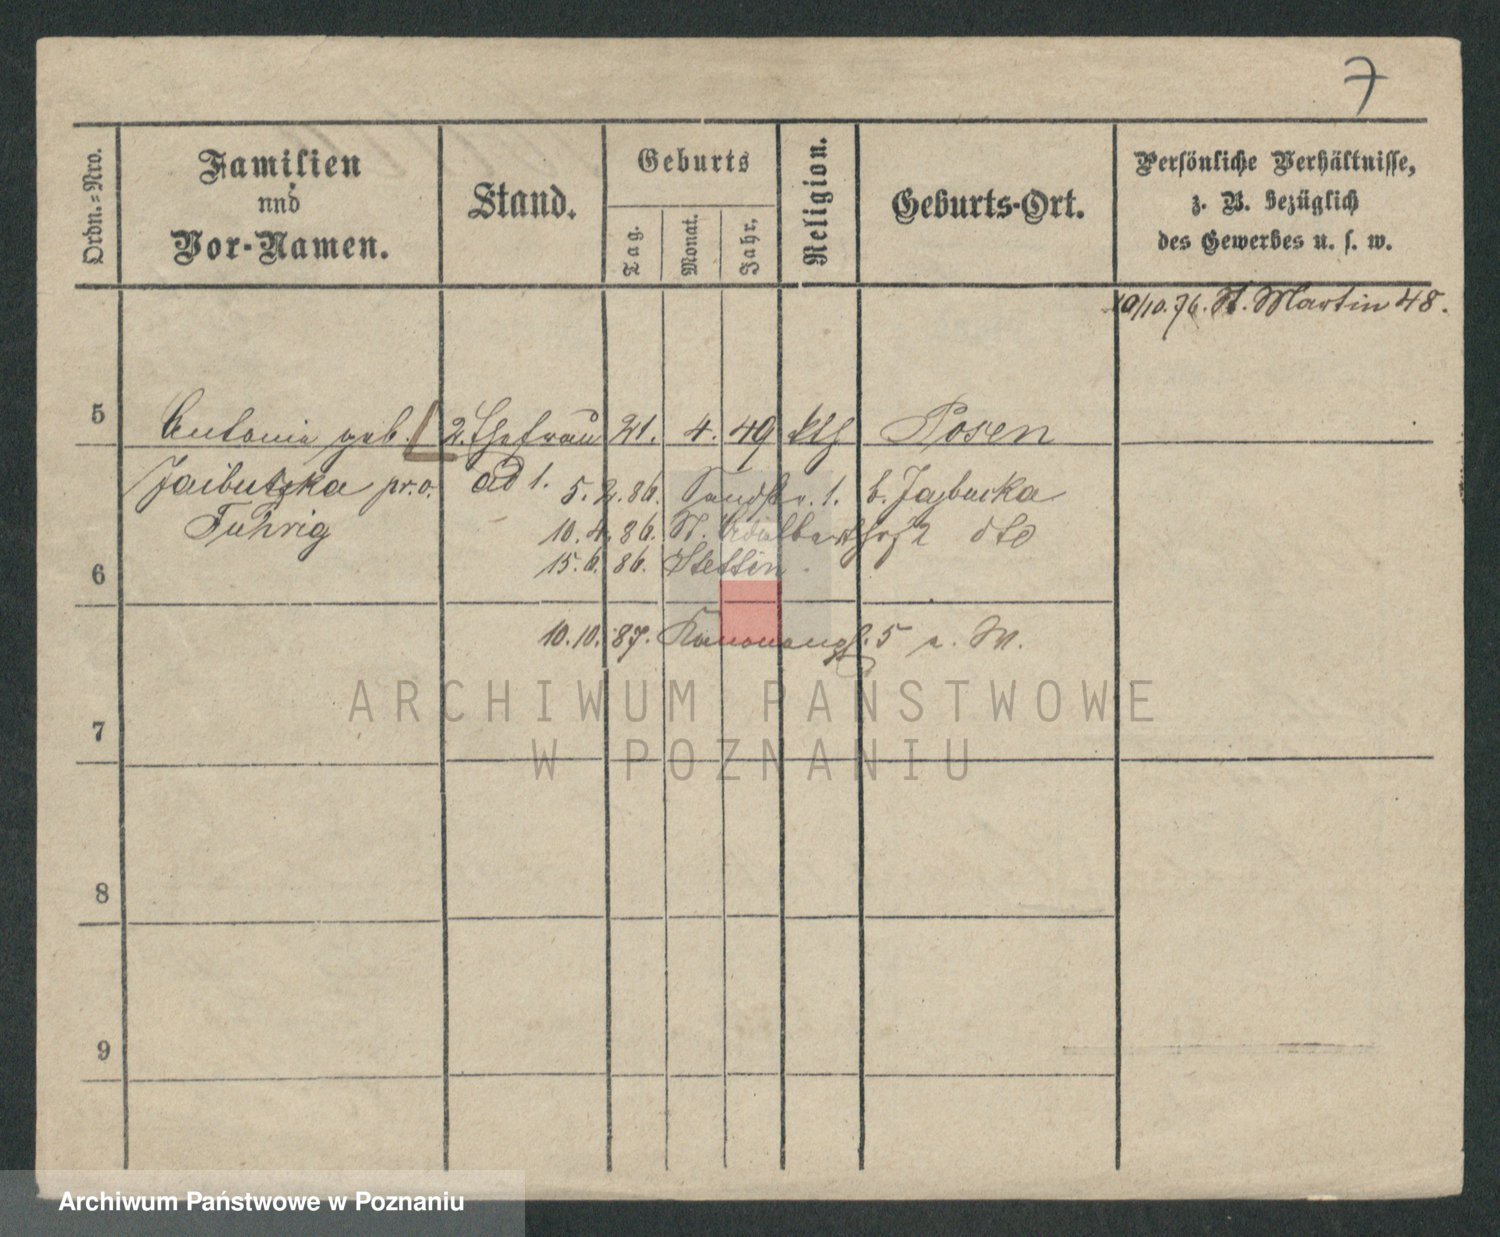 7
Ordn.=Nro.
Familien
und
Vor-Namen.
Stand.
Geburts
Tag.
Monat.
Jahr.
Religion.
Geburts-Ort.
Persönliche Verhältnisse,
z. B. bezüglich
des Gewerbes u. s. w.
10/10.76. St. Martin 48.
5
Antonie geb. 2. Ehefrau 21. 4. 49 kth Posen
pr. o. ad 1. 5. 2. 86. Sandstr. 1. b.
Fuhrig
10. 4. 86. St. 2 dto
6
15. 6. 86. Stettin.
10. 10. 87. 5 M.
ARCHIWUM PAŃSTWOWE
7
W POZNANIU
8
9
Archiwum Państwowe w Poznaniu